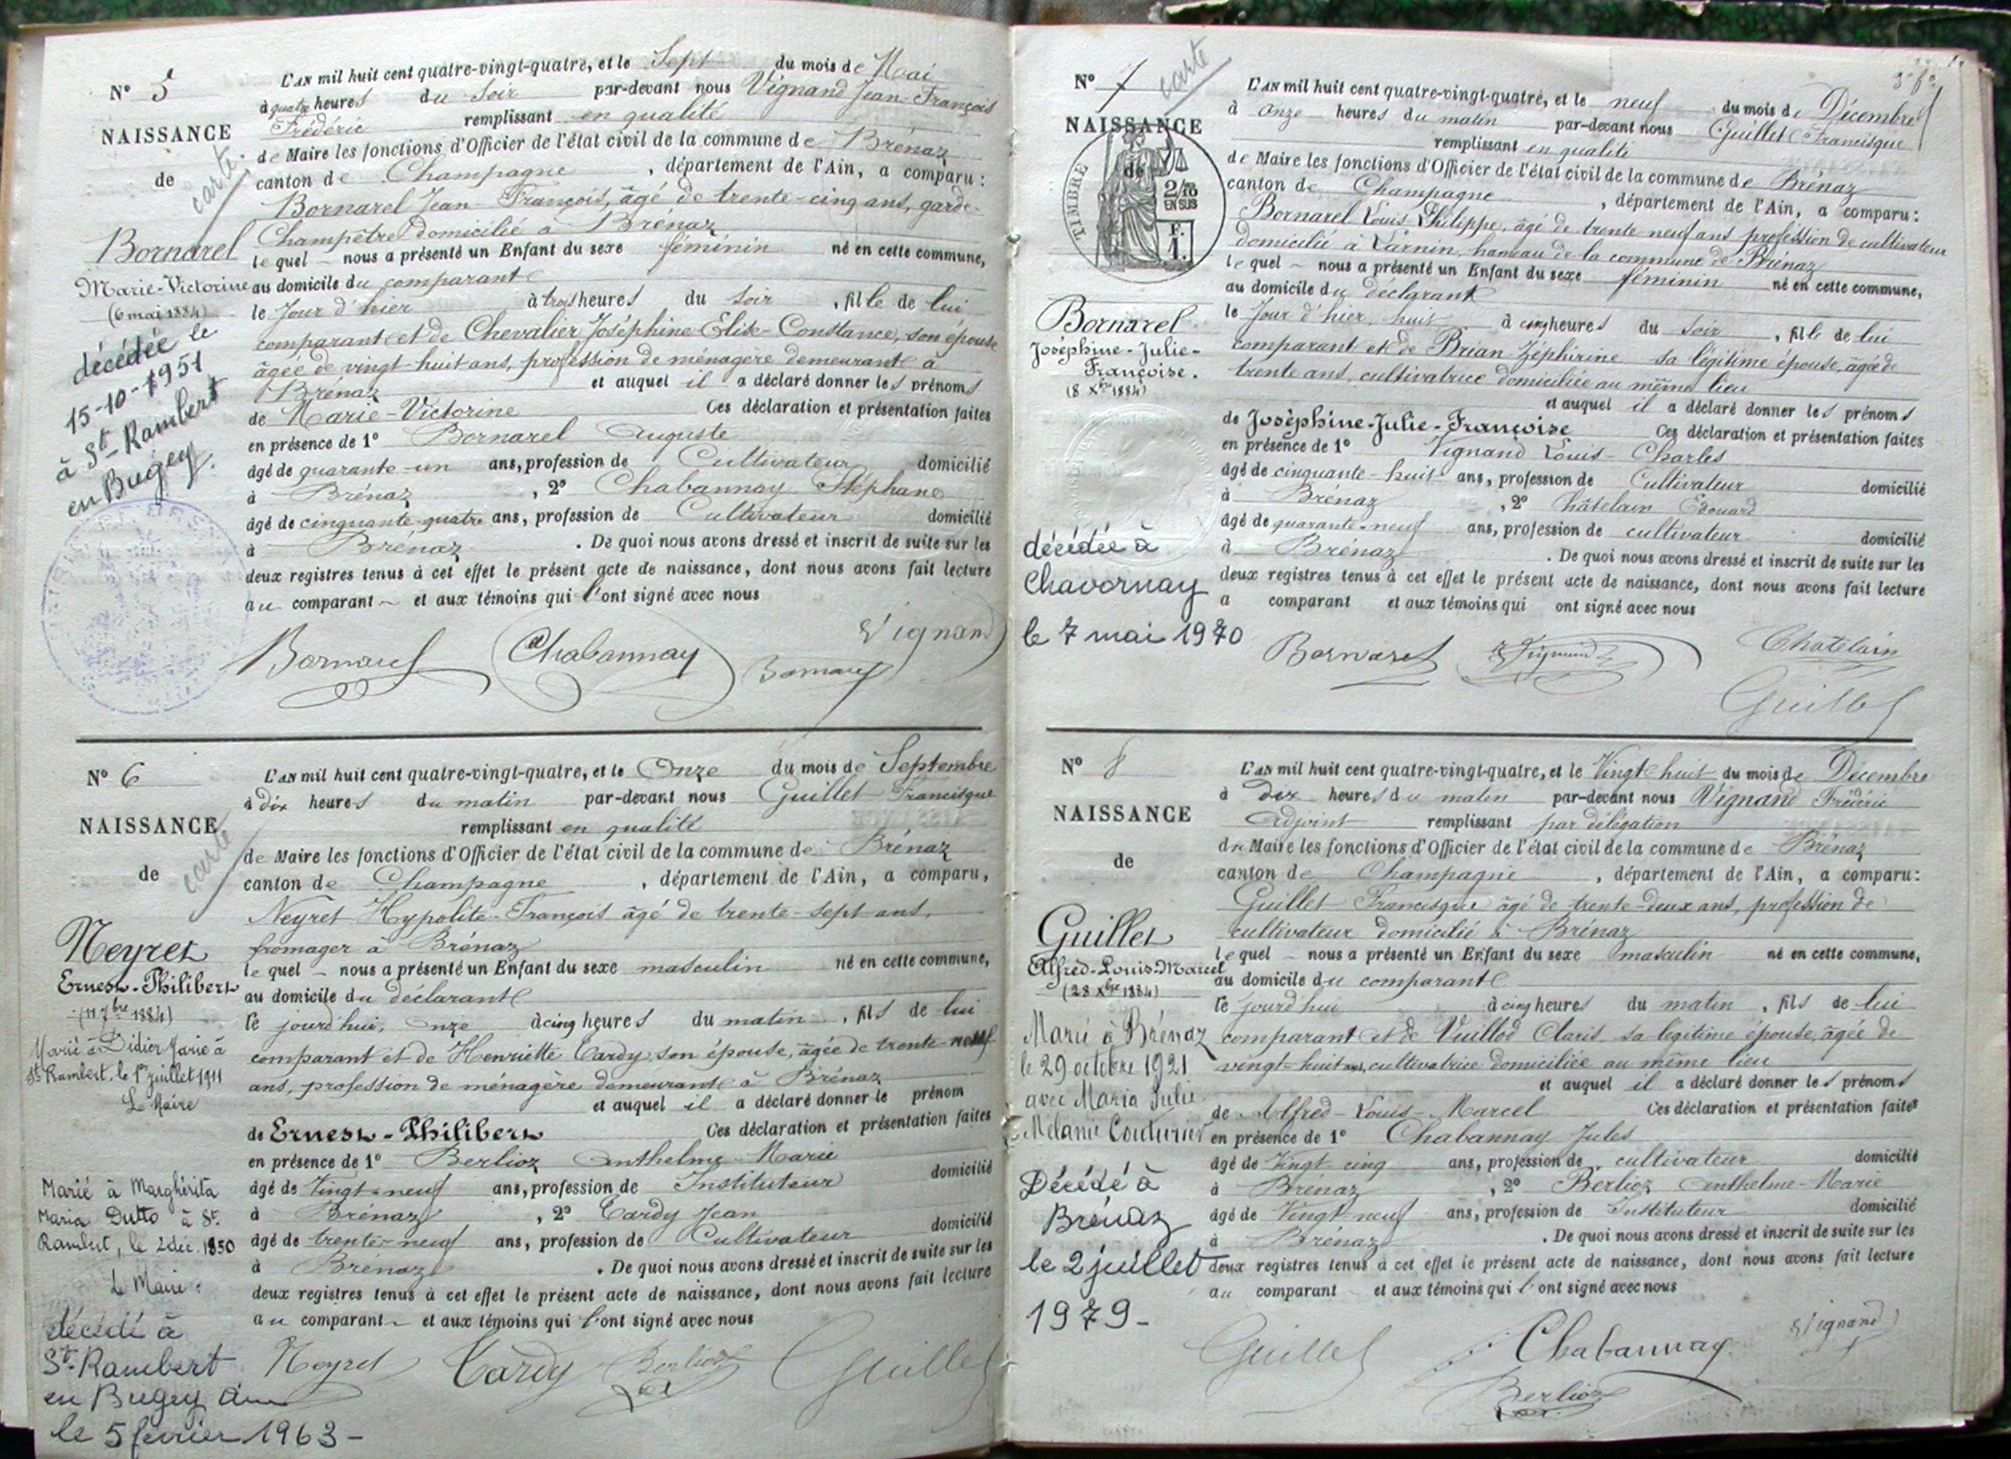 N° 5
NAISSANCE
de
carte
Bornarel
Marie-Victorine
(6 mai 1884)
décédée le
15-10-1951
à St Rambert
en Bugey.
L'AN mil huit cent quatre-vingt-quatre, et le Sept du mois de Mai
à quatre heures du soir par-devant nous Vignand Jean-François
Frédéric remplissant en qualité
de Maire les fonctions d'Officier de l'état civil de la commune de Brénaz
canton de Champagne, département de l'Ain, a comparu:
Bornarel Jean-François, âgé de trente-cinq ans, garde-
Champêtre domicilié à Brénaz
lequel nous a présenté un Enfant du sexe féminin né en cette commune,
au domicile du comparant
le Jour d'hier à trois heures du soir, fille de lui
comparant et de Chevalier Joséphine-Elise-Constance, son épouse
âgée de vingt-huit ans, profession de ménagère demeurant à
Brénaz et auquel il a déclaré donner les prénoms
de Marie-Victorine Ces déclaration et présentation faites
en présence de 1° Bornarel Auguste
âgé de quarante-un ans, profession de Cultivateur domicilié
à Brénaz, 2° Chabannay Stéphane
âgé de cinquante-quatre ans, profession de Cultivateur domicilié
à Brénaz. De quoi nous avons dressé et inscrit de suite sur les
deux registres tenus à cet effet le présent acte de naissance, dont nous avons fait lecture
au comparant et aux témoins qui l'ont signé avec nous
Bornarel Chabannay Bornarel Vignand
N° 6
NAISSANCE
de
carte
Neyret
Ernest-Philibert
(11 7bre 1884)
Marié à Didier Marie à
St Rambert, le 1er juillet 1911
Le Maire
Marié à Marghérita
Maria Dutto à St
Rambert, le 2 déc. 1950
Le Maire:
décédé à
St-Rambert
en Bugey Ain
le 5 février 1963-
L'AN mil huit cent quatre-vingt-quatre, et le Onze du mois de Septembre
à dix heures du matin par-devant nous Guillet Francisque
remplissant en qualité
de Maire les fonctions d'Officier de l'état civil de la commune de Brénaz
canton de Champagne, département de l'Ain, a comparu,
Neyret Hypolite-François âgé de trente-sept ans,
fromager à Brénaz
lequel nous a présenté un Enfant du sexe masculin né en cette commune,
au domicile du déclarant
le jourd'hui, onze à cinq heures du matin, fils de lui
comparant et de Henriette Cardy, son épouse, âgée de trente-neuf
ans, profession de ménagère demeurant à Brénaz
et auquel il a déclaré donner le prénom
de Ernest-Philibert Ces déclaration et présentation faites
en présence de 1° Berlioz Anthelme-Marie
âgé de Vingt-neuf ans, profession de Instituteur domicilié
à Brénaz, 2° Cardy Jean
âgé de trente-neuf ans, profession de Cultivateur domicilié
à Brénaz. De quoi nous avons dressé et inscrit de suite sur les
deux registres tenus à cet effet le présent acte de naissance, dont nous avons fait lecture
au comparant et aux témoins qui l'ont signé avec nous
Neyret Cardy Berlioz Guillet
N° 7
carte
NAISSANCE
de
TIMBRE
2/10
EN SUS
F.
1.
Bornarel
Joséphine-Julie-
Françoise.
(8 Xbre 1884)
décédée à
Chavornay
le 7 mai 1970
L'AN mil huit cent quatre-vingt-quatre, et le neuf du mois de Décembre
à onze heures du matin par-devant nous Guillet Francisque
remplissant en qualité
de Maire les fonctions d'Officier de l'état civil de la commune de Brénaz
canton de Champagne, département de l'Ain, a comparu:
Bornarel Louis Philippe, âgé de trente neuf ans profession de cultivateur
domicilié à Larnin, hameau de la commune de Brénaz
lequel nous a présenté un Enfant du sexe féminin né en cette commune,
au domicile du déclarant
le Jour d'hier, huit à cinq heures du soir, fille de lui
comparant et de Brian Zéphirine sa légitime épouse, âgée de
trente ans, cultivatrice domiciliée au même lieu
et auquel il a déclaré donner les prénoms
de Joséphine-Julie-Françoise Ces déclaration et présentation faites
en présence de 1° Vignand Louis-Charles
âgé de cinquante-huit ans, profession de Cultivateur domicilié
à Brénaz, 2° Châtelain Edouard
âgé de quarante-neuf ans, profession de cultivateur domicilié
à Brénaz. De quoi nous avons dressé et inscrit de suite sur les
deux registres tenus à cet effet le présent acte de naissance, dont nous avons fait lecture
a comparant et aux témoins qui ont signé avec nous
Bornarel Vignand Chatelain
Guillet
N° 8
NAISSANCE
de
Guillet
Alfred-Louis-Marcel
(28 Xbre 1884)
Marié à Brénaz
le 29 octobre 1921
avec Maria Julie
Mélanie Couturier
Décédé à
Brénaz
le 2 juillet
1979-
L'AN mil huit cent quatre-vingt-quatre, et le Vingt huit du mois de Décembre
à dix heures du matin par-devant nous Vignand Frédéric
Adjoint remplissant par délégation
du Maire les fonctions d'Officier de l'état civil de la commune de Brénaz
canton de Champagne, département de l'Ain, a comparu:
Guillet Francisque âgé de trente-deux ans, profession de
cultivateur domicilié à Brénaz
lequel nous a présenté un Enfant du sexe masculin né en cette commune,
au domicile du comparant
le jourd'hui à cinq heures du matin, fils de lui
comparant et de Vuillod Claris sa légitime épouse, âgée de
vingt-huit ans, cultivatrice domiciliée au même lieu
et auquel il a déclaré donner les prénoms
de Alfred-Louis-Marcel Ces déclaration et présentation faites
en présence de 1° Chabannay Jules
âgé de Vingt cinq ans, profession de cultivateur domicilié
à Brénaz, 2° Berlioz Anthelme-Marie
âgé de Vingt-neuf ans, profession de Instituteur domicilié
à Brénaz. De quoi nous avons dressé et inscrit de suite sur les
deux registres tenus à cet effet le présent acte de naissance, dont nous avons fait lecture
au comparant et aux témoins qui l'ont signé avec nous
Guillet Chabannay Vignand
Berlioz